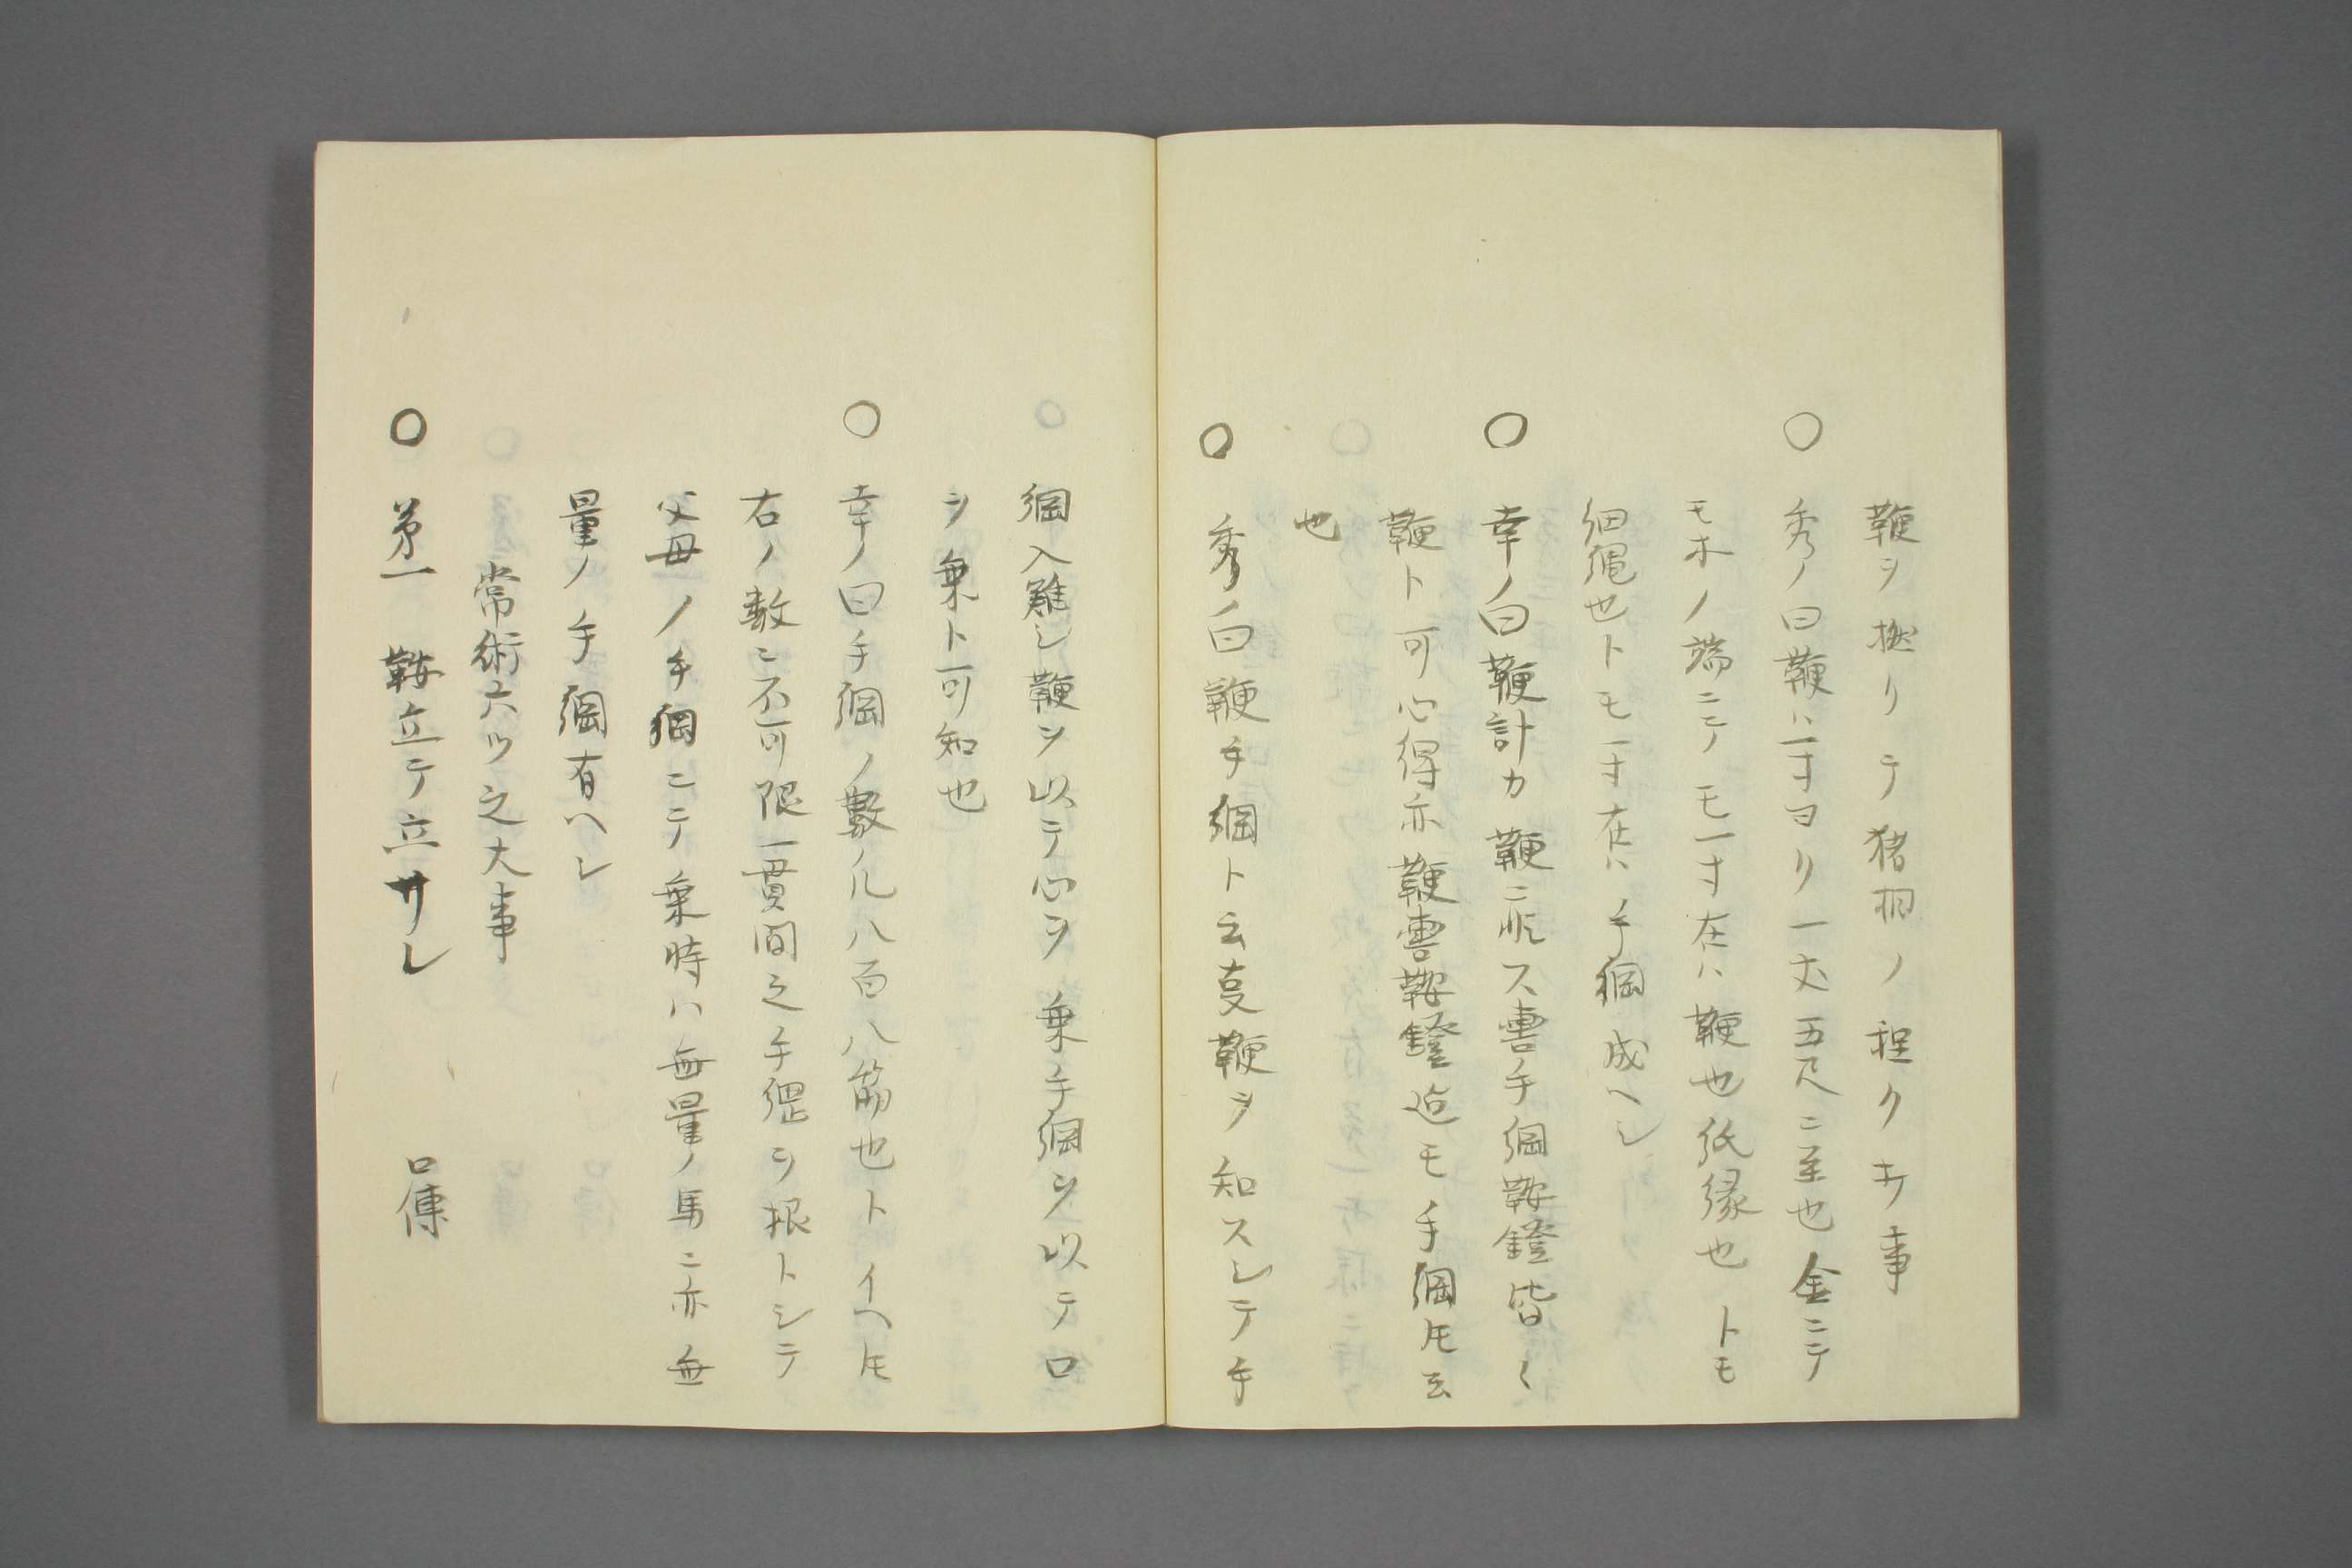 鞭ヲ撚リテ猪桐ノ程クキ事
○ 秀ノ曰鞭ハ一寸ヨリ一丈五尺ニ至也金ニテ
モ木ノ端ニテモ一寸在ハ鞭也紙縁也トモ
細縄也トモ一寸在ハ手綱成ヘシ
○ 幸ノ曰鞭計カ鞭ニ非ス轡手綱鞍鐙皆〱
鞭ト可心得亦鞭轡鞍鐙迄モ手綱トモ云
也
○ 秀ノ曰鞭手綱ト云㕝鞭ヲ知スレテ手
綱入難シ鞭ヲ以テ心ヲ乗手綱ヲ以テロ
ヲ乗ト可知也
○ 幸ノ曰手綱ノ數ノ凡八百八筋也トイヘトモ
右ノ數ニ不可限一貫間之手綱ヲ根トシテ
父母ノ手綱ニテ乗時ハ無量ノ馬ニ亦無
量ノ手綱有ヘレ
常術六ツ之大事
○ 第一 鞍立テ立サレ 口傳